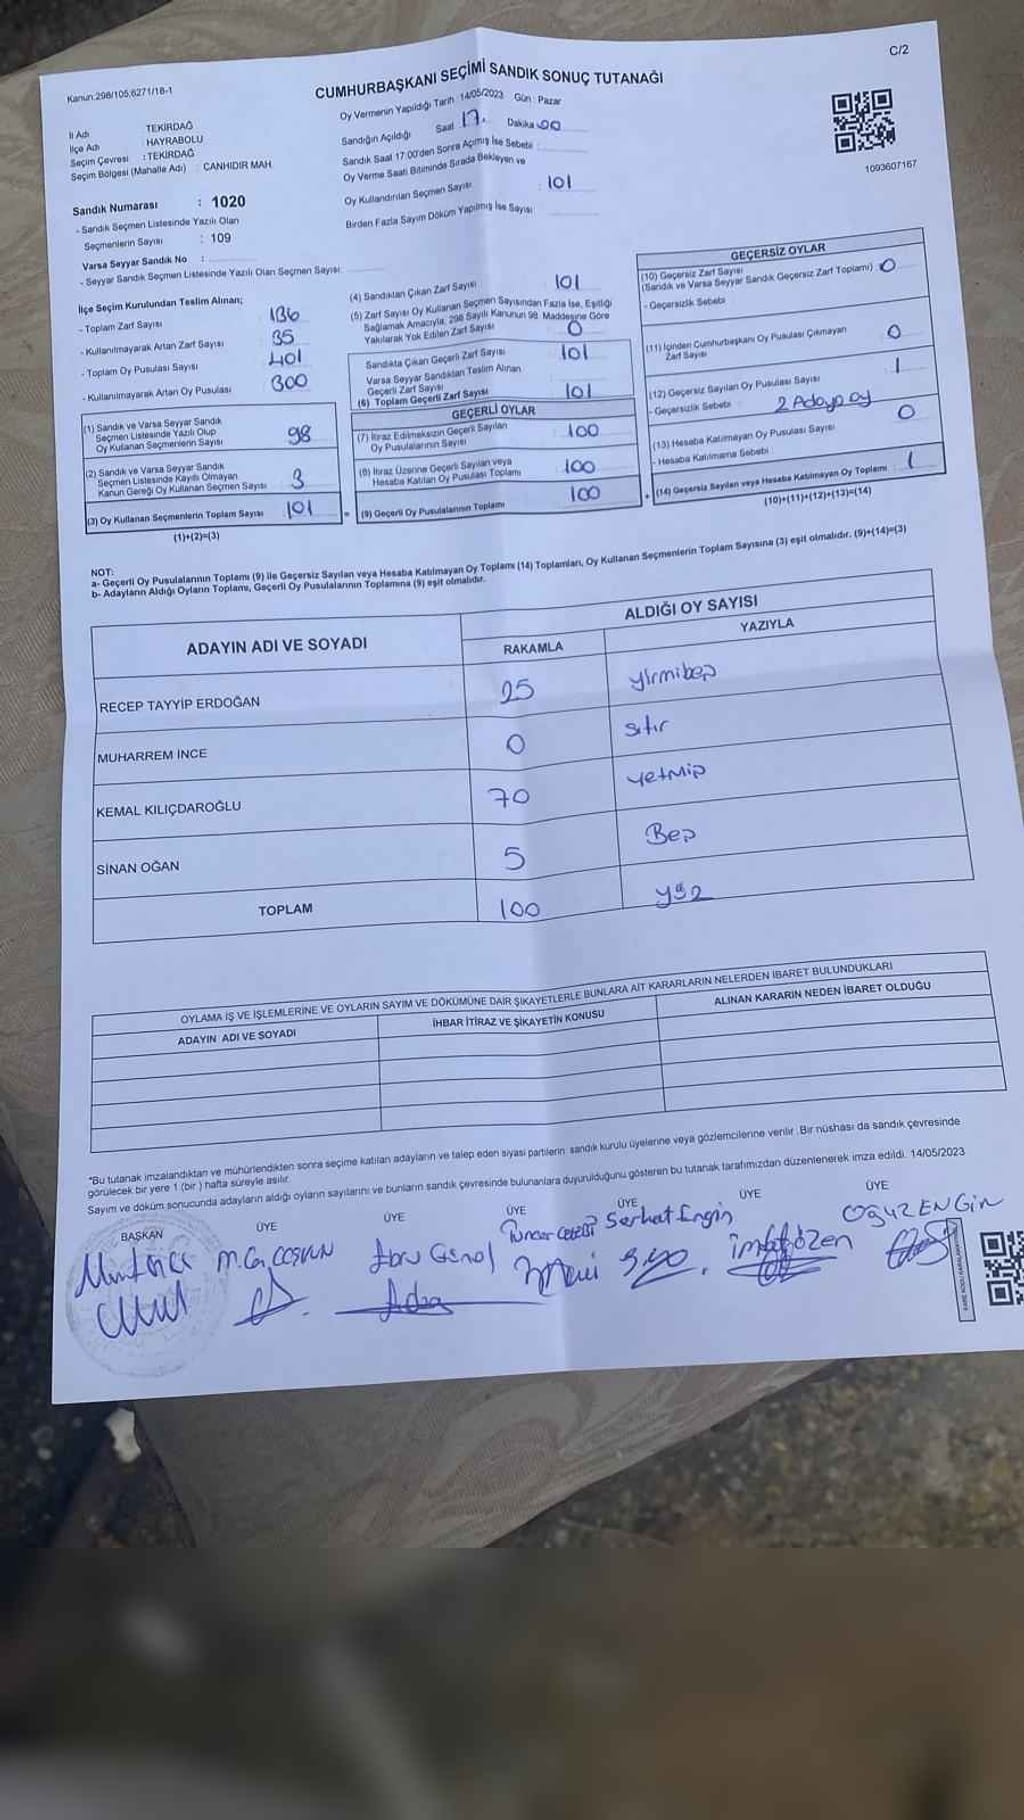 C/2
Kanun:298/105,6271/18-1
CUMHURBAŞKANI SEÇİMİ SANDIK SONUÇ TUTANAĞI
Oy Vermenin Yapıldığı Tarih :14/05/2023 Gün : Pazar
İl Adı TEKİRDAĞ
İlçe Adı HAYRABOLU
Seçim Çevresi : TEKİRDAĞ
Seçim Bölgesi (Mahalle Adı) : CANHIDIR MAH.
Sandığın Açıldığı Saat 17. Dakika 00
Sandık Saat 17:00'den Sonra Açılmış İse Sebebi :
Oy Verme Saati Bitiminde Sırada Bekleyen ve
Oy Kullandırılan Seçmen Sayısı : 101
Birden Fazla Sayım Döküm Yapılmış İse Sayısı
1093607167
Sandık Numarası : 1020
- Sandık Seçmen Listesinde Yazılı Olan
Seçmenlerin Sayısı : 109
Varsa Seyyar Sandık No :
- Seyyar Sandık Seçmen Listesinde Yazılı Olan Seçmen Sayısı:
İlçe Seçim Kurulundan Teslim Alınan;
- Toplam Zarf Sayısı 136
- Kullanılmayarak Artan Zarf Sayısı 35
- Toplam Oy Pusulası Sayısı 401
- Kullanılmayarak Artan Oy Pusulası 300
(1) Sandık ve Varsa Seyyar Sandık
Seçmen Listesinde Yazılı Olup
Oy Kullanan Seçmenlerin Sayısı 98
(2) Sandık ve Varsa Seyyar Sandık
Seçmen Listesinde Kayıtlı Olmayan
Kanun Gereği Oy Kullanan Seçmen Sayısı 3
(3) Oy Kullanan Seçmenlerin Toplam Sayısı 101
(1)+(2)=(3)
(4) Sandıktan Çıkan Zarf Sayısı 101
(5) Zarf Sayısı Oy Kullanan Seçmen Sayısından Fazla İse, Eşitliği
Sağlamak Amacıyla, 298 Sayılı Kanunun 98. Maddesine Göre
Yakılarak Yok Edilen Zarf Sayısı 0
Sandıkta Çıkan Geçerli Zarf Sayısı 101
Varsa Seyyar Sandıktan Teslim Alınan
Geçerli Zarf Sayısı
(6) Toplam Geçerli Zarf Sayısı 101
GEÇERLİ OYLAR
(7) İtiraz Edilmeksizin Geçerli Sayılan
Oy Pusulalarının Sayısı 100
(8) İtiraz Üzerine Geçerli Sayılan veya
Hesaba Katılan Oy Pusulası Toplamı 100
= (9) Geçerli Oy Pusulalarının Toplamı 100
GEÇERSİZ OYLAR
(10) Geçersiz Zarf Sayısı
(Sandık ve Varsa Seyyar Sandık Geçersiz Zarf Toplamı) 0
- Geçersizlik Sebebi
(11) İçinden Cumhurbaşkanı Oy Pusulası Çıkmayan
Zarf Sayısı 0
(12) Geçersiz Sayılan Oy Pusulası Sayısı 1
- Geçersizlik Sebebi 2 Adaya oy
(13) Hesaba Katılmayan Oy Pusulası Sayısı 0
- Hesaba Katılmama Sebebi
+ (14) Geçersiz Sayılan veya Hesaba Katılmayan Oy Toplamı 1
(10)+(11)+(12)+(13)=(14)
NOT:
a- Geçerli Oy Pusulalarının Toplamı (9) ile Geçersiz Sayılan veya Hesaba Katılmayan Oy Toplamı (14) Toplamları, Oy Kullanan Seçmenlerin Toplam Sayısına (3) eşit olmalıdır. (9)+(14)=(3)
b- Adayların Aldığı Oyların Toplamı, Geçerli Oy Pusulalarının Toplamına (9) eşit olmalıdır.
ADAYIN ADI VE SOYADI
ALDIĞI OY SAYISI
RAKAMLA YAZIYLA
RECEP TAYYİP ERDOĞAN 25 yirmibeş
MUHARREM İNCE 0 sıfır
KEMAL KILIÇDAROĞLU 70 yetmiş
SİNAN OĞAN 5 Beş
TOPLAM 100 yüz
OYLAMA İŞ VE İŞLEMLERİNE VE OYLARIN SAYIM VE DÖKÜMÜNE DAİR ŞİKAYETLERLE BUNLARA AİT KARARLARIN NELERDEN İBARET BULUNDUKLARI
ADAYIN ADI VE SOYADI İHBAR İTİRAZ VE ŞİKAYETİN KONUSU ALINAN KARARIN NEDEN İBARET OLDUĞU
"Bu tutanak imzalandıktan ve mühürlendikten sonra seçime katılan adayların ve talep eden siyasi partilerin sandık kurulu üyelerine veya gözlemcilerine verilir. Bir nüshası da sandık çevresinde
görülecek bir yere 1 (bir) hafta süreyle asılır.
Sayım ve döküm sonucunda adayların aldığı oyların sayılarını ve bunların sandık çevresinde bulunanlara duyurulduğunu gösteren bu tutanak tarafımızdan düzenlenerek imza edildi. 14/05/2023
BAŞKAN ÜYE ÜYE ÜYE ÜYE ÜYE ÜYE
COŞKUN Ebru Serhat Engin özen OĞUZ ENGİN